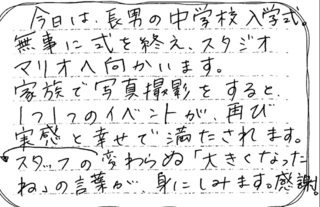 今日は、長男の中学校入学式。
無事に式を終え、スタジオ
マリオへ向かいます。
家族で写真撮影をすると、
1つ1つのイベントが、再び
実感と幸せで満たされます。
スタッフの変わらぬ「大きくなった
ね」の言葉が、身にしみます。感謝!